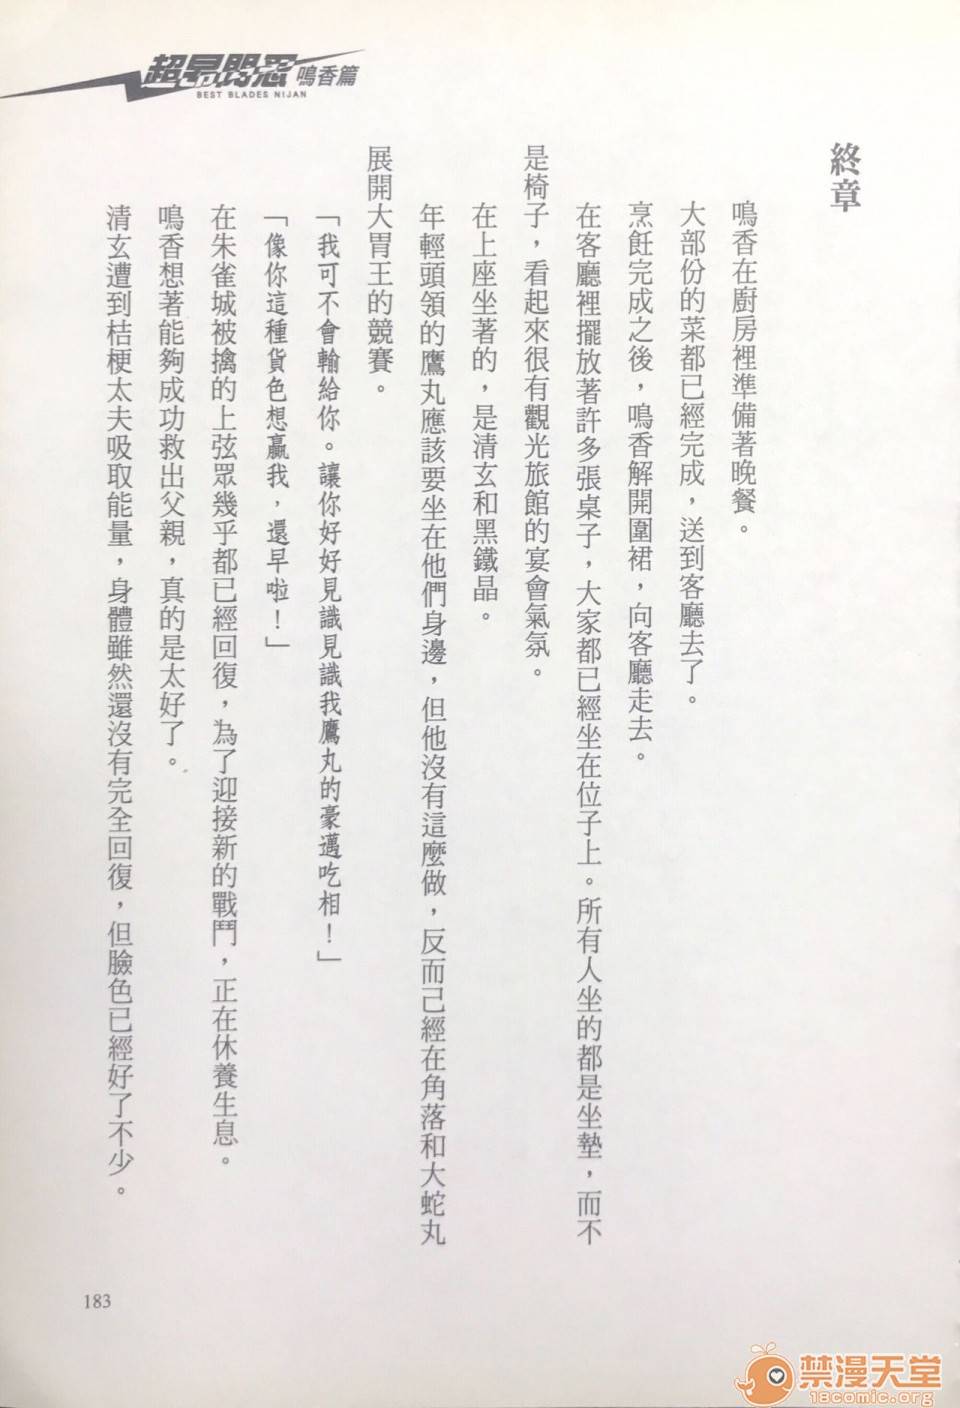 超昂閃忍 鳴香篇
BEST BLADES NIJAN
終章
鳴香在廚房裡準備著晚餐。
大部份的菜都已經完成，送到客廳去了。
烹飪完成之後，鳴香解開圍裙，向客廳走去。
在客廳裡擺放著許多張桌子，大家都已經坐在位子上。所有人坐的都是坐墊，而不
是椅子，看起來很有觀光旅館的宴會氣氛。
在上座坐著的，是清玄和黑鐵晶。
年輕頭領的鷹丸應該要坐在他們身邊，但他沒有這麼做，反而己經在角落和大蛇丸
展開大胃王的競賽。
「我可不會輸給你。讓你好好見識見識我鷹丸的豪邁吃相！」
「像你這種貨色想贏我，還早啦！」
在朱雀城被擒的上弦眾幾乎都已經回復，為了迎接新的戰鬥，正在休養生息。
鳴香想著能夠成功救出父親，真的是太好了。
清玄遭到桔梗太夫吸取能量，身體雖然還沒有完全回復，但臉色已經好了不少。
183
禁漫天堂
18comic.org